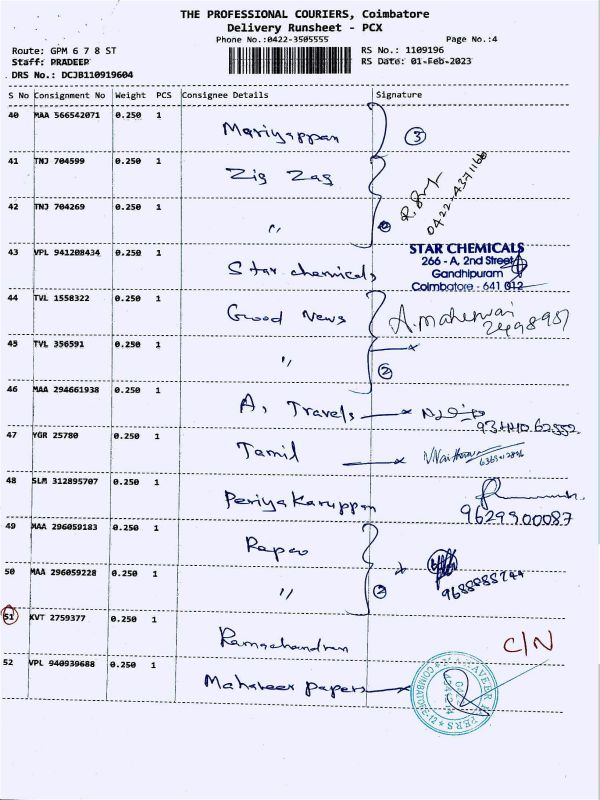 THE PROFESSIONAL COURIERS, Coimbatore
Delivery Runsheet - PCX
Phone No.:0422-3505555 Page No.:4
Route: GPM 6 7 8 ST RS No.: 1109196
Staff: PRADEEP RS Date: 01-Feb-2023
DRS No.: DCJB110919604
S No Consignment No Weight PCS Consignee Details Signature
40 MAA 566542071 0.250 1 Mariyappan 3
41 TNJ 704599 0.250 1 Zig Zag
0422-4371166
42 TNJ 704269 0.250 1 "
43 VPL 941208434 0.250 1 Star chemicals
STAR CHEMICALS
266 - A, 2nd Street
Gandhipuram
Coimbatore - 641 012
44 TVL 1558322 0.250 1 Good News
45 TVL 356591 0.250 1 " 2
46 MAA 294661938 0.250 1 A, Travels
47 YGR 25780 0.250 1 Tamil
48 SLM 312895707 0.250 1 Periyakaruppan
9629900087
49 MAA 296059183 0.250 1
50 MAA 296059228 0.250 1 " 2
51 KVT 2759377 0.250 1 Ramachandran C/N
52 VPL 940939688 0.250 1 Mahaveer papers